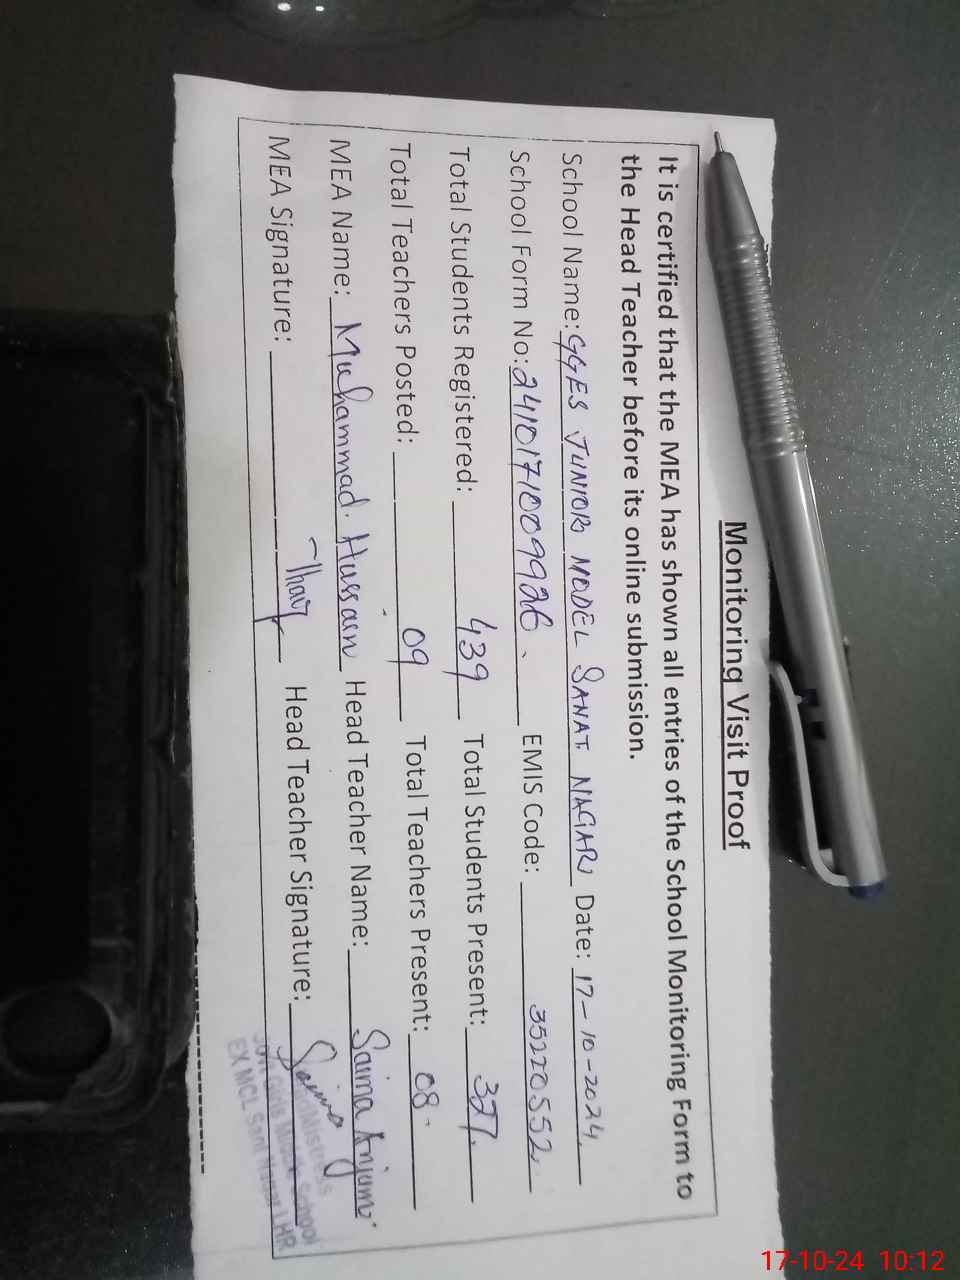 Monitoring Visit Proof
It is certified that the MEA has shown all entries of the School Monitoring Form to
the Head Teacher before its online submission.
School Name: GGES JUNIOR MODEL SANAT NAGAR Date: 17-10-2024
School Form No: 2410171009926 EMIS Code: 35220552
Total Students Registered: 439 Total Students Present: 327
Total Teachers Posted: 09 Total Teachers Present: 08
MEA Name: Muhammad Hussain Head Teacher Name: Saima Anjum
MEA Signature: Head Teacher Signature: Saima
School
EX MCL LHR
17-10-24 10:12